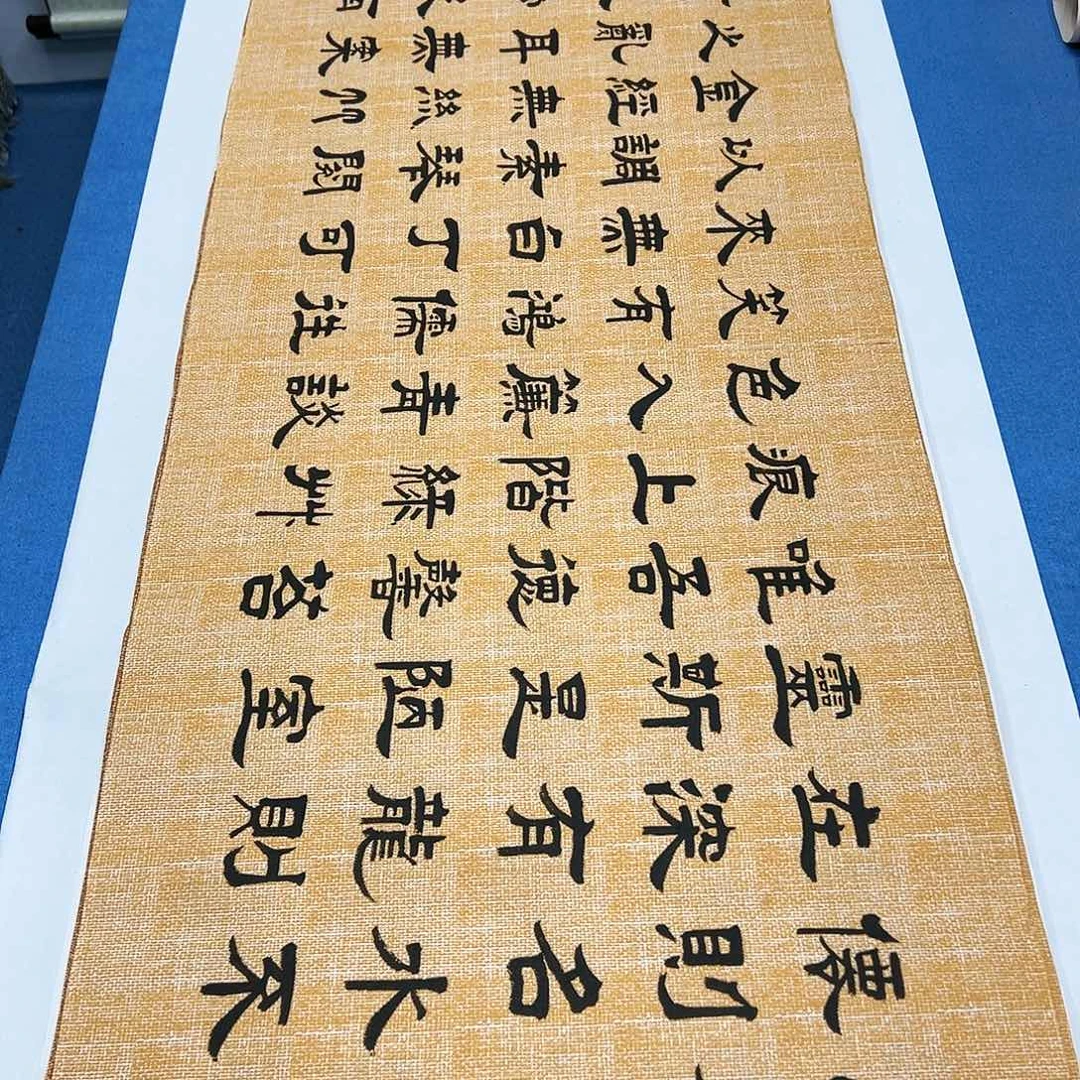 僊則名水不
在深有龍則
靈斯是陋室
唯吾德馨苔
痕上階綠艸
色入簾青談
笑有鴻儒往
來無白丁可
以調素琴閱
金經無絲竹
之亂耳無案